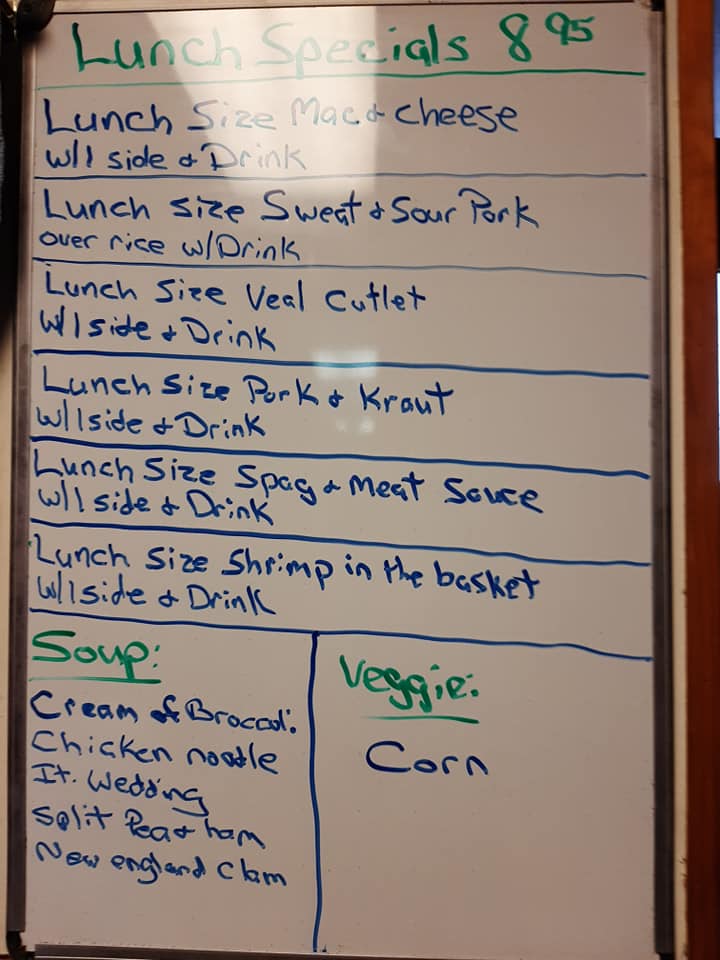 Lunch Specials 8 95
Lunch Size Mac & Cheese
w/1 side & Drink
Lunch Size Sweat & Sour Pork
over rice w/Drink
Lunch Size Veal Cutlet
W/1 side & Drink
Lunch Size Pork & Kraut
w/1 side & Drink
Lunch Size Spag & Meat Sauce
w/1 side & Drink
Lunch Size Shrimp in the basket
w/1 side & Drink
Soup:
Cream of Broccoli
Chicken noodle
It. Wedding
Split Pea & ham
New england Clam
Veggie:
Corn